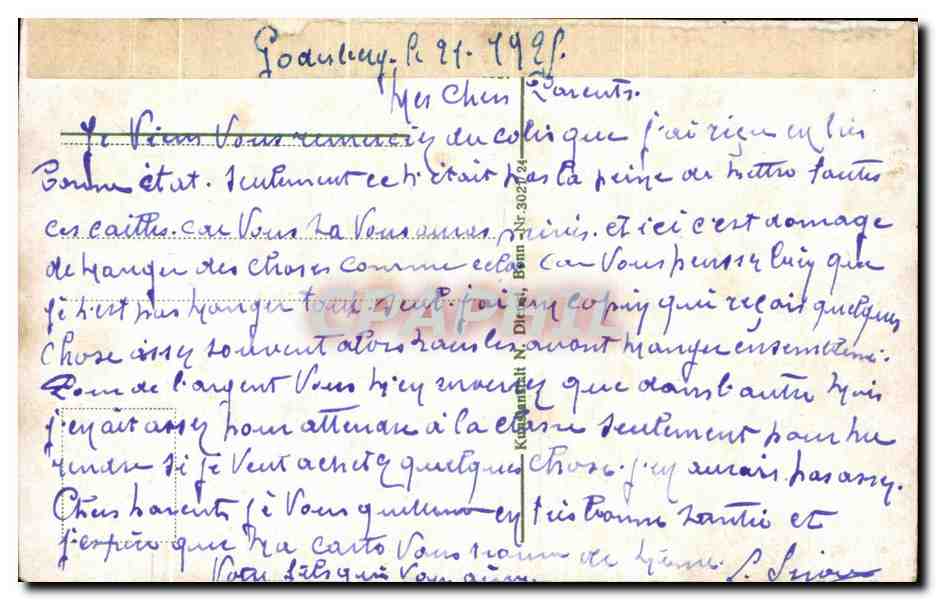 Godesberg. le 21. 1925.
Mes Chers Parents.
Je Viens Vous remerciez du colis que j'ai rięu en très
bonne état. Seulement ce n'était pas la peine de mettre toutes
ces cailles. car Vous Vous et ici c'est domage
de manger des choses comme cela car Vous pensez bien que
je n'est pas manger tout seul. j'ai un copin qui reçois quelques
chose assez souvent alors nous les avont manger ensemble.
Pour de l'argent Vous m'en enverrez que dans l'autre mois
j'en ait assez pour attendre à la classe seulement pour me
rendre si je Veut achetez quelques chose. j'en aurais pas assez.
Chers parents je Vous quitte en très bonne santée et
j'espère que ma carte Vous de même.
Votre fils qui Vous aime.
Kunstanstalt N. Diesel, Bonn - Nr. 3027/24
CPAPHIL